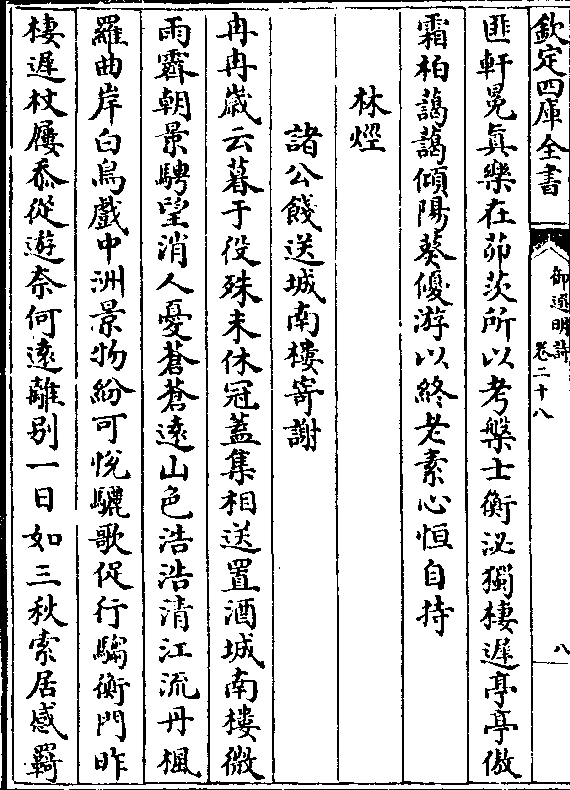 欽定四庫全書
御選明詩
卷二十八
八
匪軒冕真樂在茆茨所以考槃士衡泌獨棲遲亭亭傲
霜柏藹藹傾陽葵優游以終老素心恒自持
林烴
諸公餞送城南樓寄謝
冉冉歲云暮于役殊未休冠蓋集相送置酒城南樓微
雨霽朝景騁望消人憂蒼蒼遠山色浩浩清江流丹楓
羅曲岸白鳥戲中洲景物紛可悅驪歌促行騶衡門昨
棲遲杖屨忝從遊奈何遠離别一日如三秋索居感羇